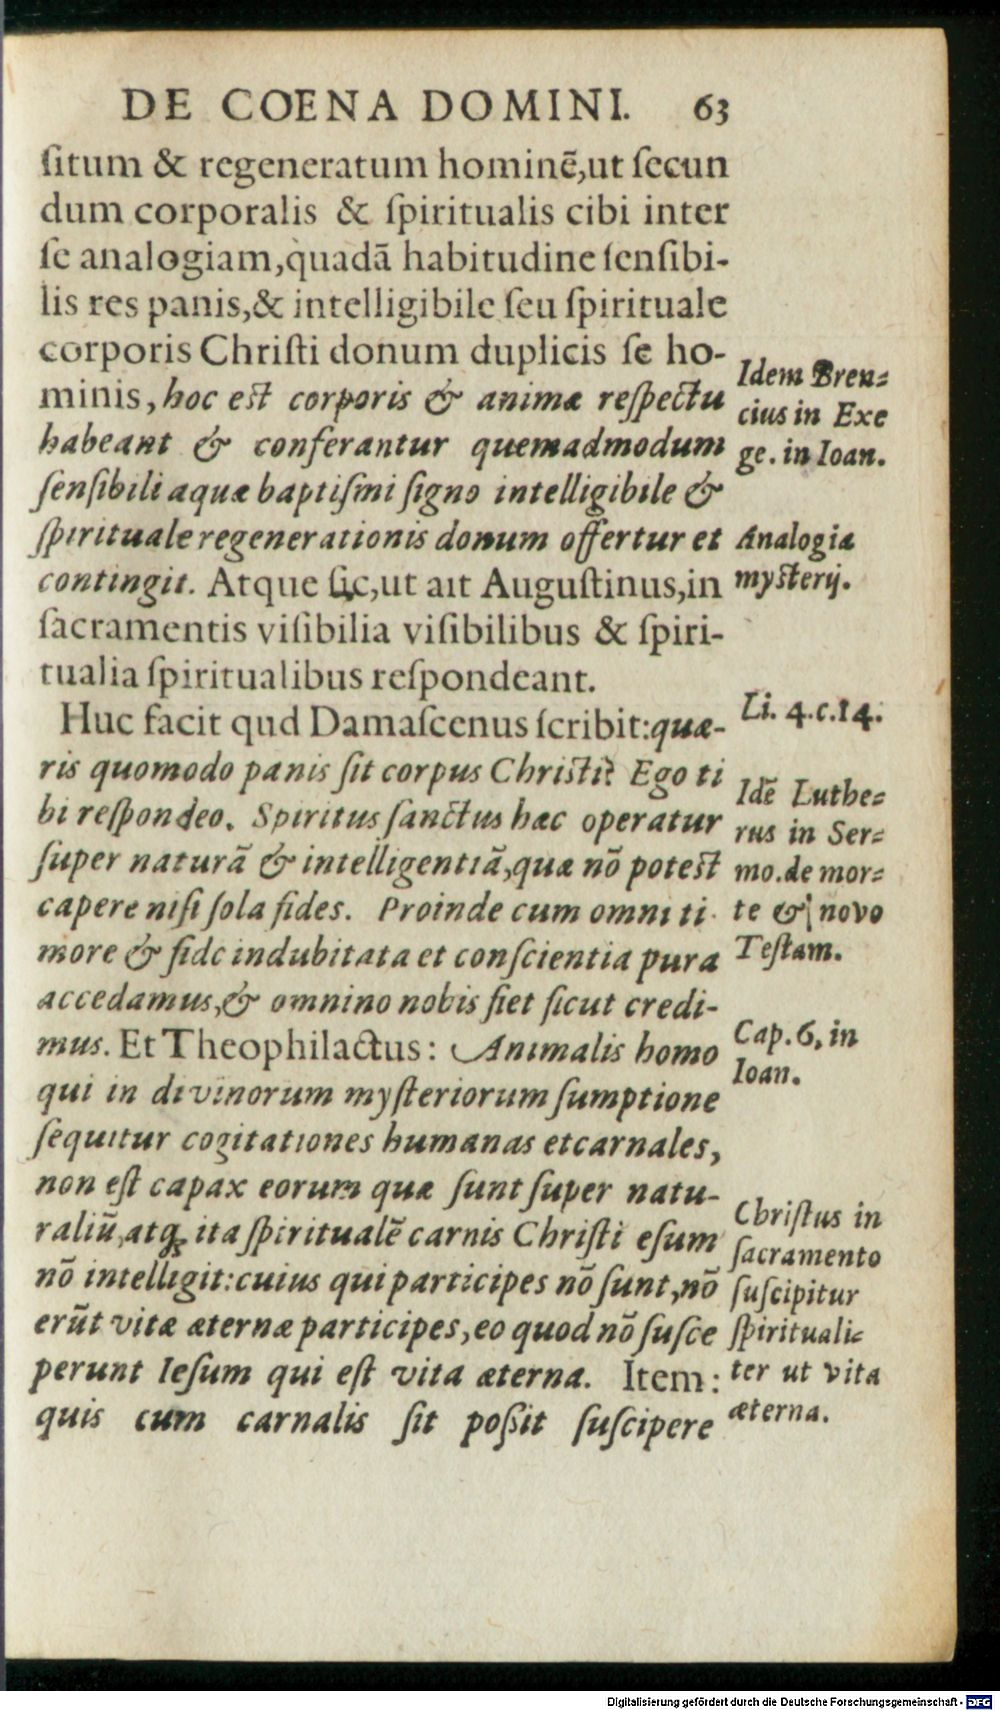 DE COENA DOMINI. 63
ſitum & regeneratum hominē,ut ſecun
dum corporalis & ſpiritualis cibi inter
ſe analogiam,quadā habitudine ſenſibi-
lis res panis,& intelligibile ſeu ſpirituale
corporis Chriſti donum duplicis ſe ho-
minis, hoc eſt corporis & animæ reſpectu
habeant & conferantur quemadmodum
ſenſibili aquæ baptiſmi ſigno intelligibile &
ſpirituale regenerationis donum offertur et
contingit. Atque ſic,ut ait Auguſtinus,in
ſacramentis viſibilia viſibilibus & ſpiri-
tualia ſpiritualibus reſpondeant.
Huc facit qud Damaſcenus ſcribit:quæ-
ris quomodo panis ſit corpus Chriſti? Ego ti
bi reſpondeo. Spiritus ſanctus hæc operatur
ſuper naturā & intelligentiā,quæ nō poteſt
capere niſi ſola fides. Proinde cum omni ti
more & fide indubitata et conſcientia pura
accedamus,& omnino nobis fiet ſicut credi-
mus. Et Theophilactus: Animalis homo
qui in divinorum myſteriorum ſumptione
ſequitur cogitationes humanas et carnales,
non eſt capax eorum quæ ſunt ſuper natu-
raliū,atq; ita ſpiritualē carnis Chriſti eſum
nō intelligit:cuius qui participes nō ſunt,nō
erūt vitæ æternæ participes,eo quod nō ſuſce
perunt Ieſum qui eſt vita æterna. Item:
quis cum carnalis ſit poßit ſuſcipere
Idem Bren-
cius in Exe
ge. in Ioan.
Analogia
myſterij.
Li. 4.c.14.
Idē Luthe-
rus in Ser-
mo.de mor-
te & novo
Teſtam.
Cap.6, in
Ioan.
Chriſtus in
ſacramento
ſuſcipitur
ſpirituali-
ter ut vita
æterna.
Digitalisierung gefördert durch die Deutsche Forschungsgemeinschaft - DFG